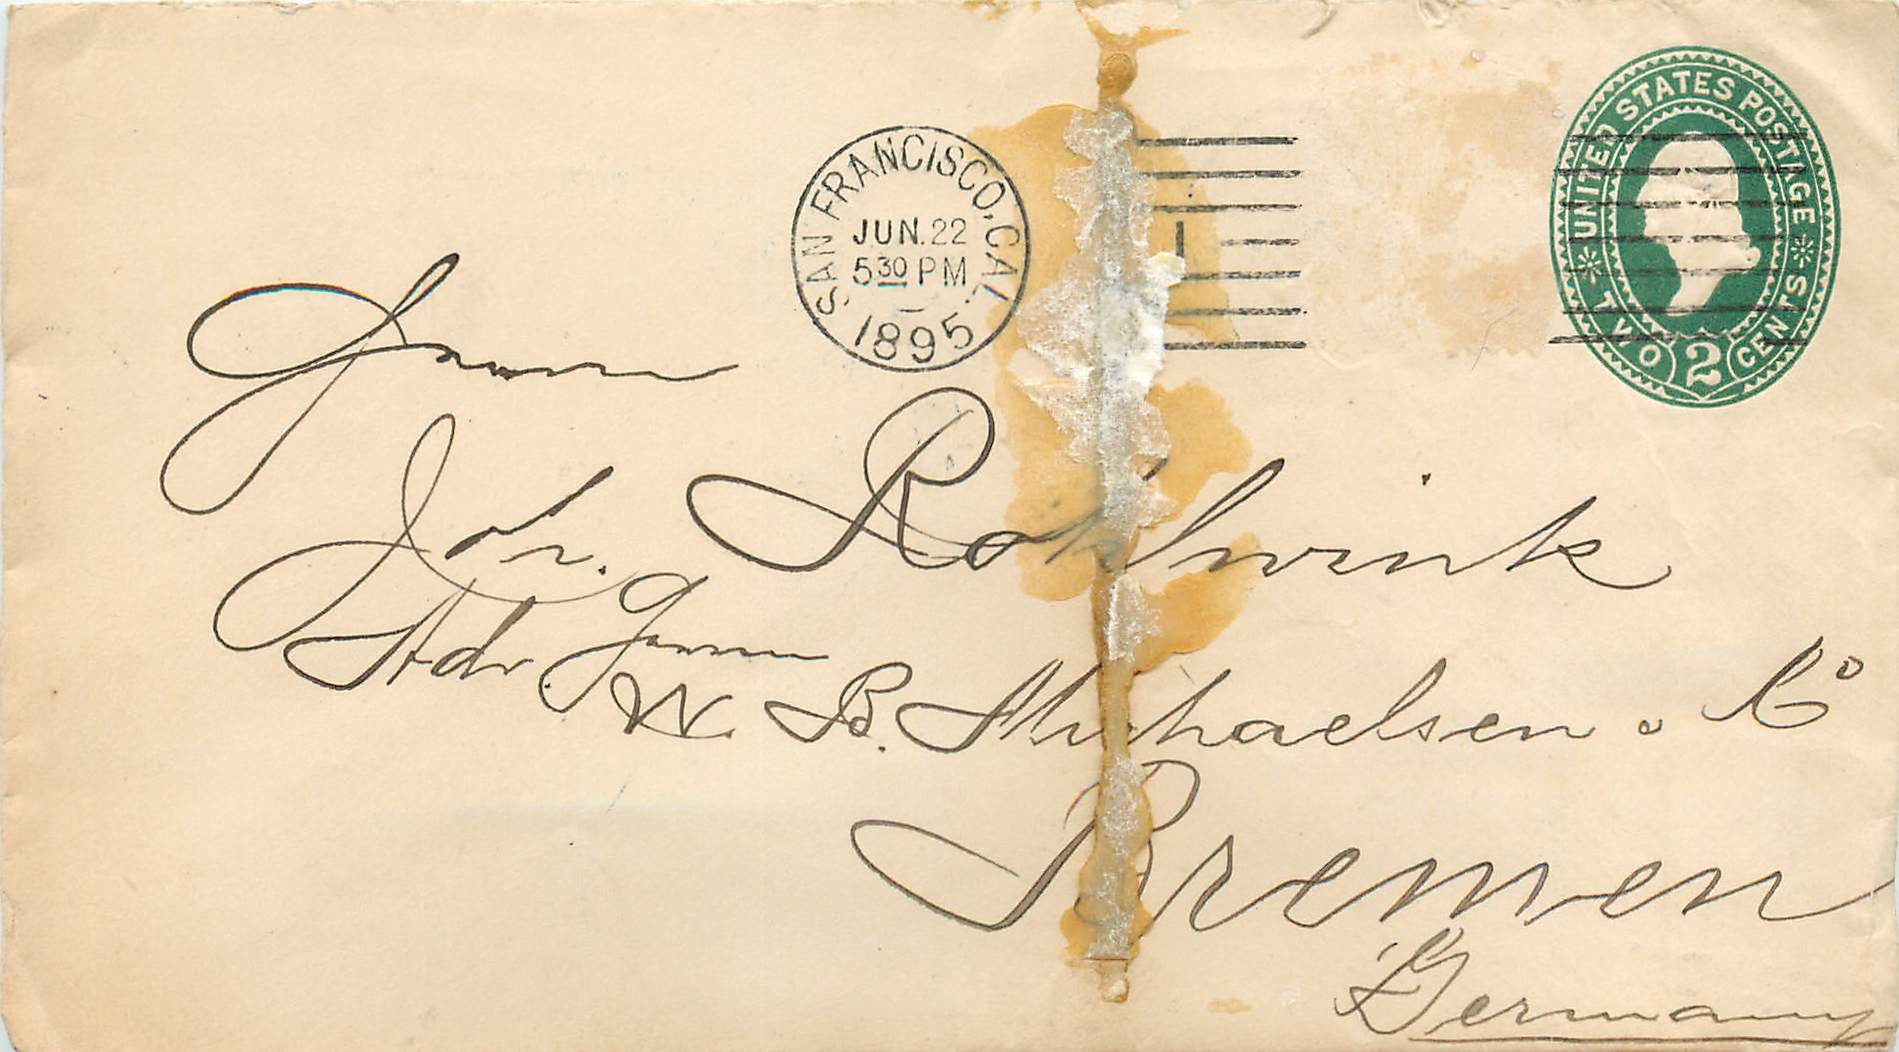 UNITED STATES POSTAGE
TWO 2 CENTS
SAN FRANCISCO, CAL.
JUN. 22
5 30 PM
1895
1
Herrn
Joh.
Adr. Herren
W. B. Michaelsen & Co
Bremen
Germany